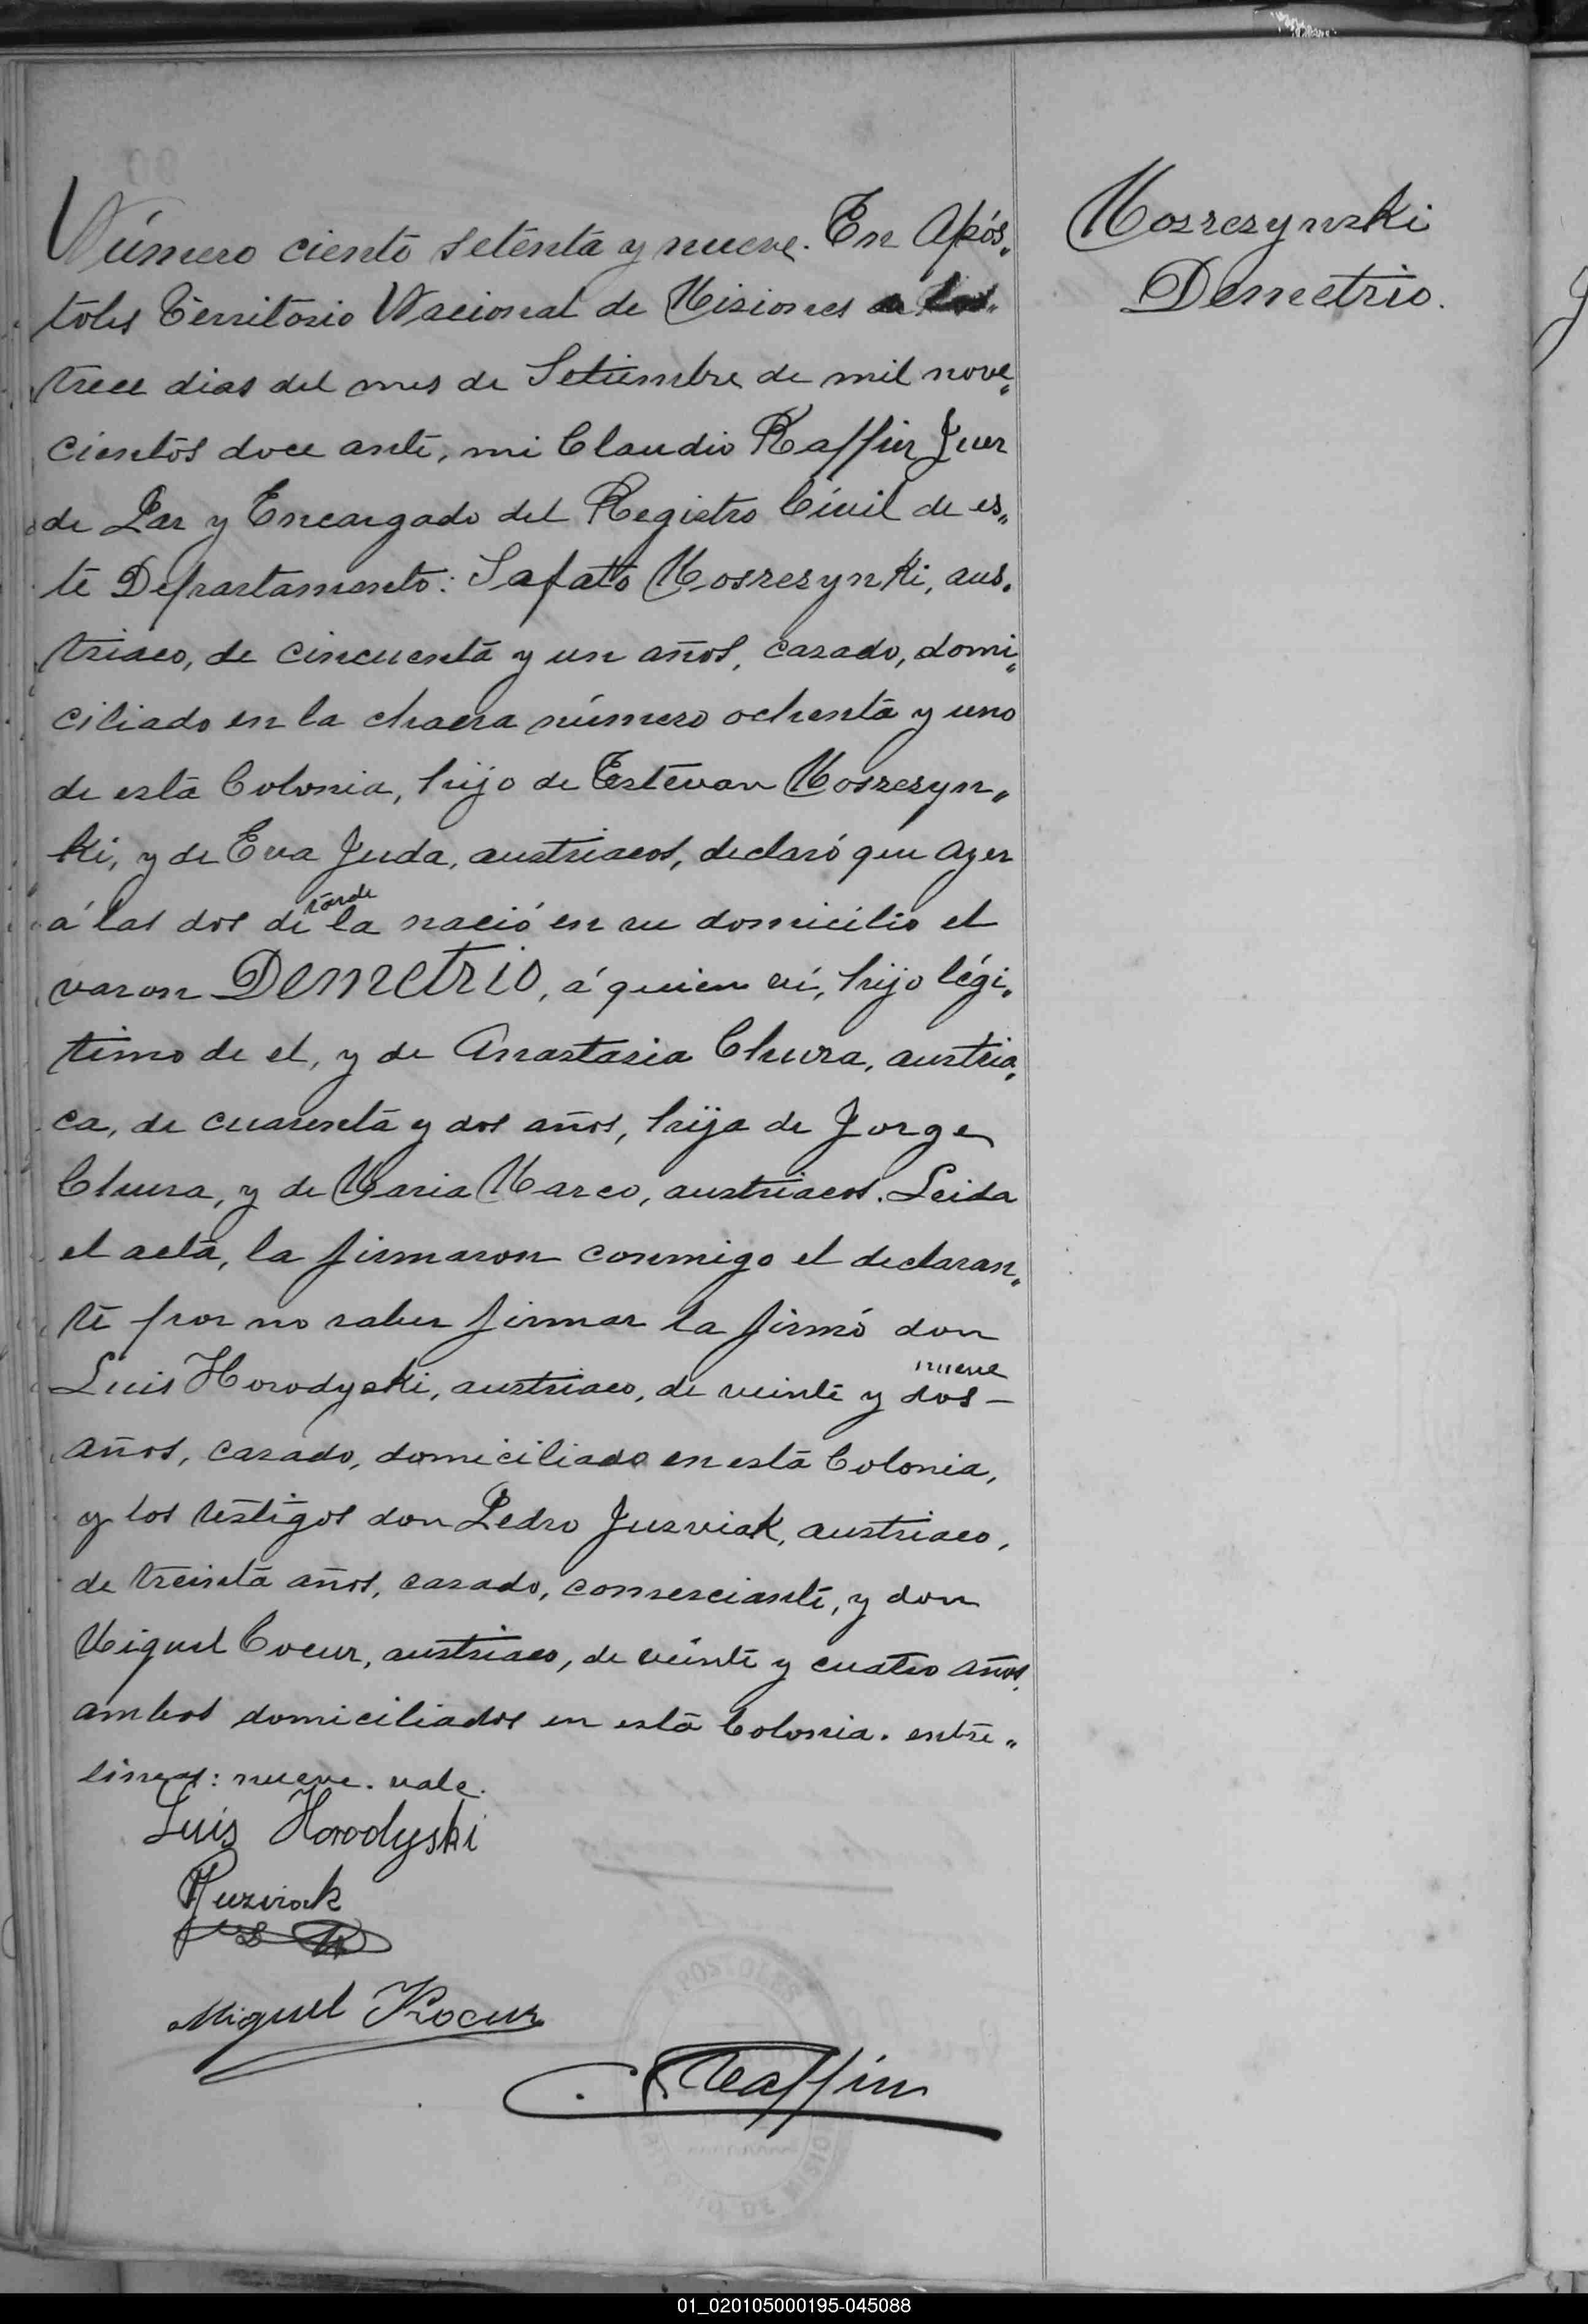 Número ciento setenta y nueve. En Após„
toles Territorio Nacional de Misiones a los
trece dias del mes de Setiembre de mil nove„
cientos doce ante, mi Claudio Raffin Juez
de Paz y Encargado del Registro Civil de es„
te Departamento: Safato Moszczynki, aus„
triaco, de cincuenta y un años, casado, domi„
ciliado en la chacra número ochenta y uno
de esta Colonia, hijo de Estevan Moszczyn„
ki, y de Eva Juda, austriacos, declaró que ayer
á las dos de la tarde nació en su domicilio el
varon Demetrio, á quien ví, hijo légi„
timo de el, y de Anastasia Chura, austria„
ca, de cuarenta y dos años, hija de Jorge
Chura, y de Maria Marco, austriacos. Leida
el acta, la firmaron conmigo el declaran„
te por no saber firmar la firmó don
Luis Horodyski, austriaco, de veinte y dos nueve –
años, casado, domiciliado en esta Colonia,
y los testigos don Pedro Jusviak, austriaco,
de treinta años, casado, comerciante, y don
Miguel Cocur, austriaco, de veinte y cuatro años,
ambos domiciliados en esta Colonia. entre„
lineas: nueve. vale.
Luis Horodyski
Miguel Kocur
C. Raffin
Moszczynski
Demetrio.
01_020105000195-045088